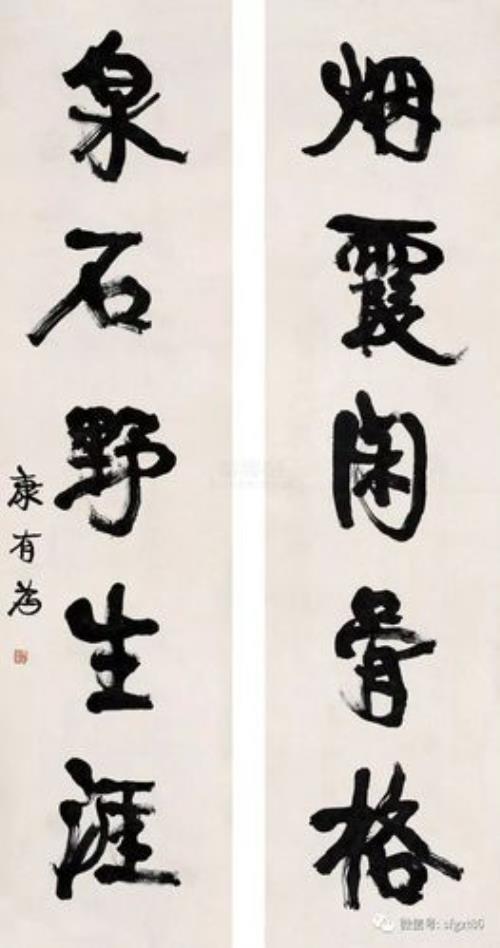 烟霞闲骨格
泉石野生涯
康有为
微信号: sfgxt80